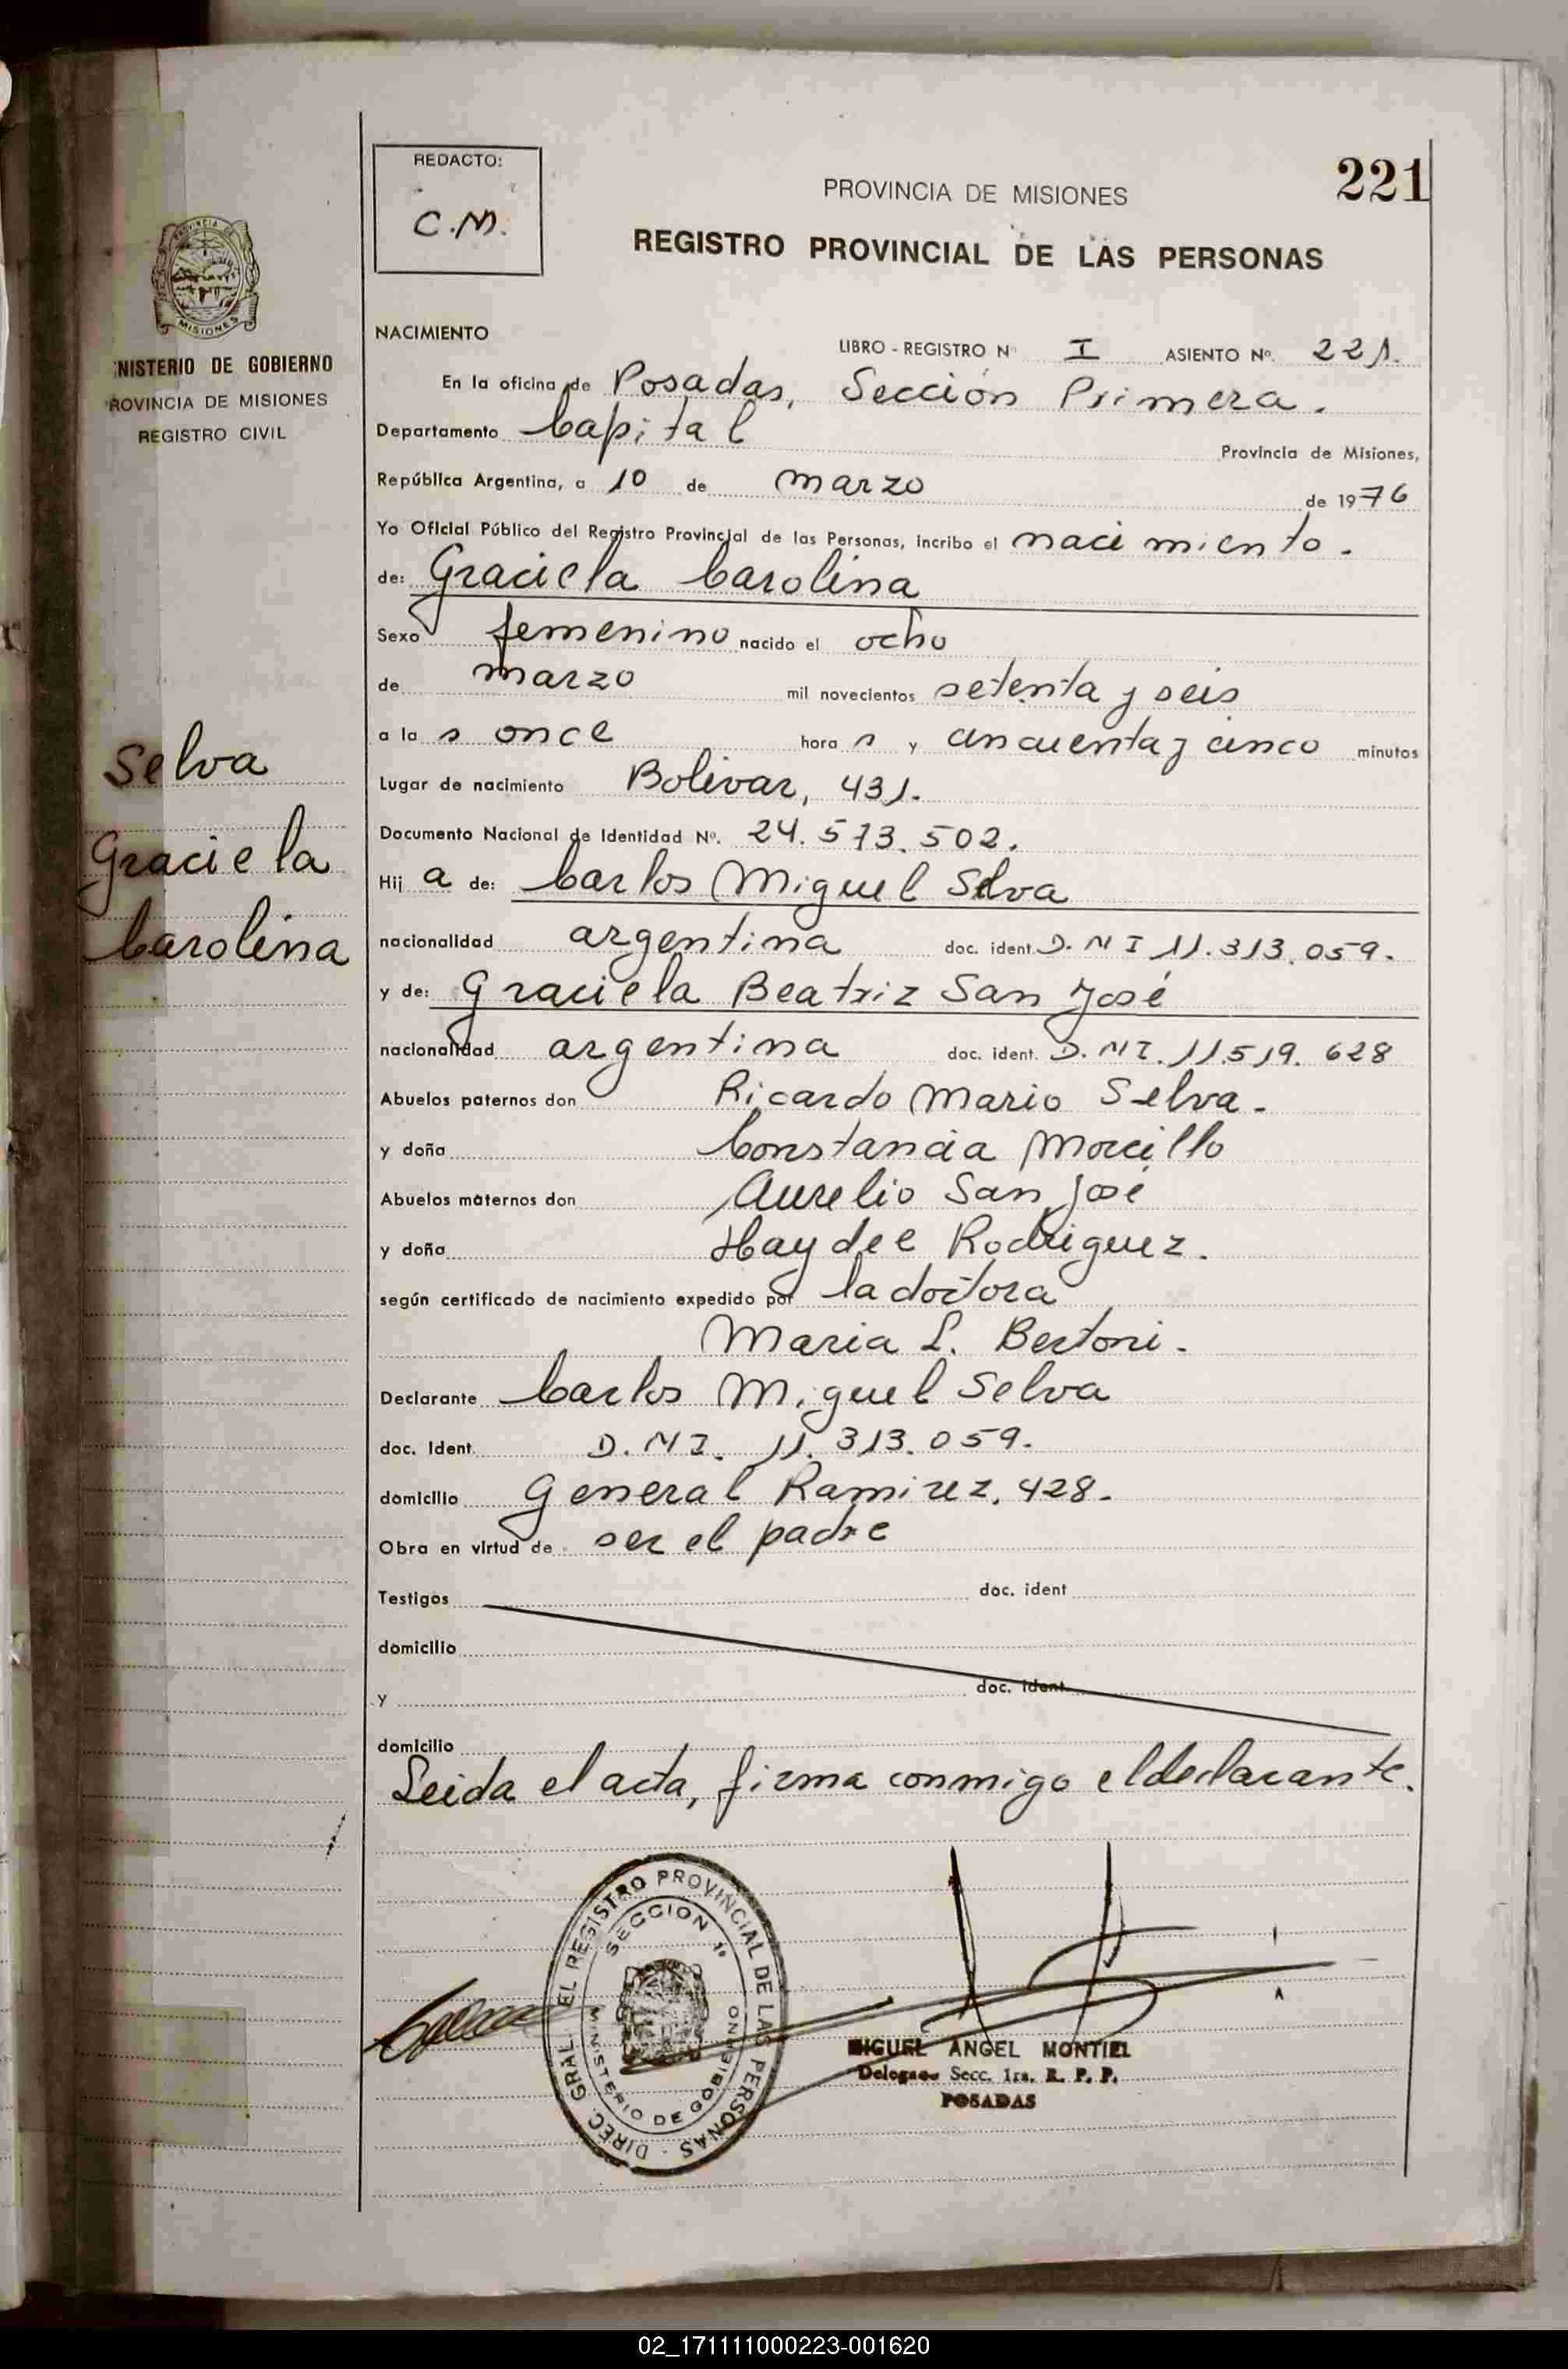 REDACTO:
C.M.
221
PROVINCIA DE MISIONES
REGISTRO PROVINCIAL DE LAS PERSONAS
PROVINCIA DE
MISIONES
NISTERIO DE GOBIERNO
ROVINCIA DE MISIONES
REGISTRO CIVIL
Selva
Graciela
Carolina
NACIMIENTO
LIBRO - REGISTRO Nº I ASIENTO Nº. 221.
En la oficina de Posadas, Sección Primera.
Departamento Capital Provincia de Misiones,
República Argentina, a 10 de marzo de 1976
Yo Oficial Público del Registro Provincial de las Personas, incribo el nacimiento.
de: Graciela Carolina
Sexo femenino nacido el ocho
de marzo mil novecientos setenta y seis
a la s once hora s y cincuenta y cinco minutos
Lugar de nacimiento Bolivar, 431.
Documento Nacional de Identidad Nº. 24.573.502.
Hij a de: Carlos Miguel Selva
nacionalidad argentina doc. ident. D.N I 11.313.059.
y de: Graciela Beatriz San José
nacionalidad argentina doc. ident. D.NI. 11.519.628
Abuelos paternos don Ricardo Mario Selva.
y doña Constancia Morcillo
Abuelos maternos don Aurelio San José
y doña Haydee Rodriguez.
según certificado de nacimiento expedido por la doctora
Maria L. Bertoni.
Declarante Carlos Miguel Selva
doc. Ident. D.NI. 11.313.059.
domicilio General Ramirez, 428.
Obra en virtud de ser el padre
Testigos doc. ident
domicilio
y doc. ident.
domicilio
Leida el acta, firma conmigo el declarante.
DIREC. GRAL. EL REGISTRO PROVINCIAL DE LAS PERSONAS -
SECCION 1º
MINISTERIO DE GOBIERNO
MIGUEL ANGEL MONTIEL
Delegado Secc. 1ra. R. P. P.
POSADAS
02_171111000223-001620